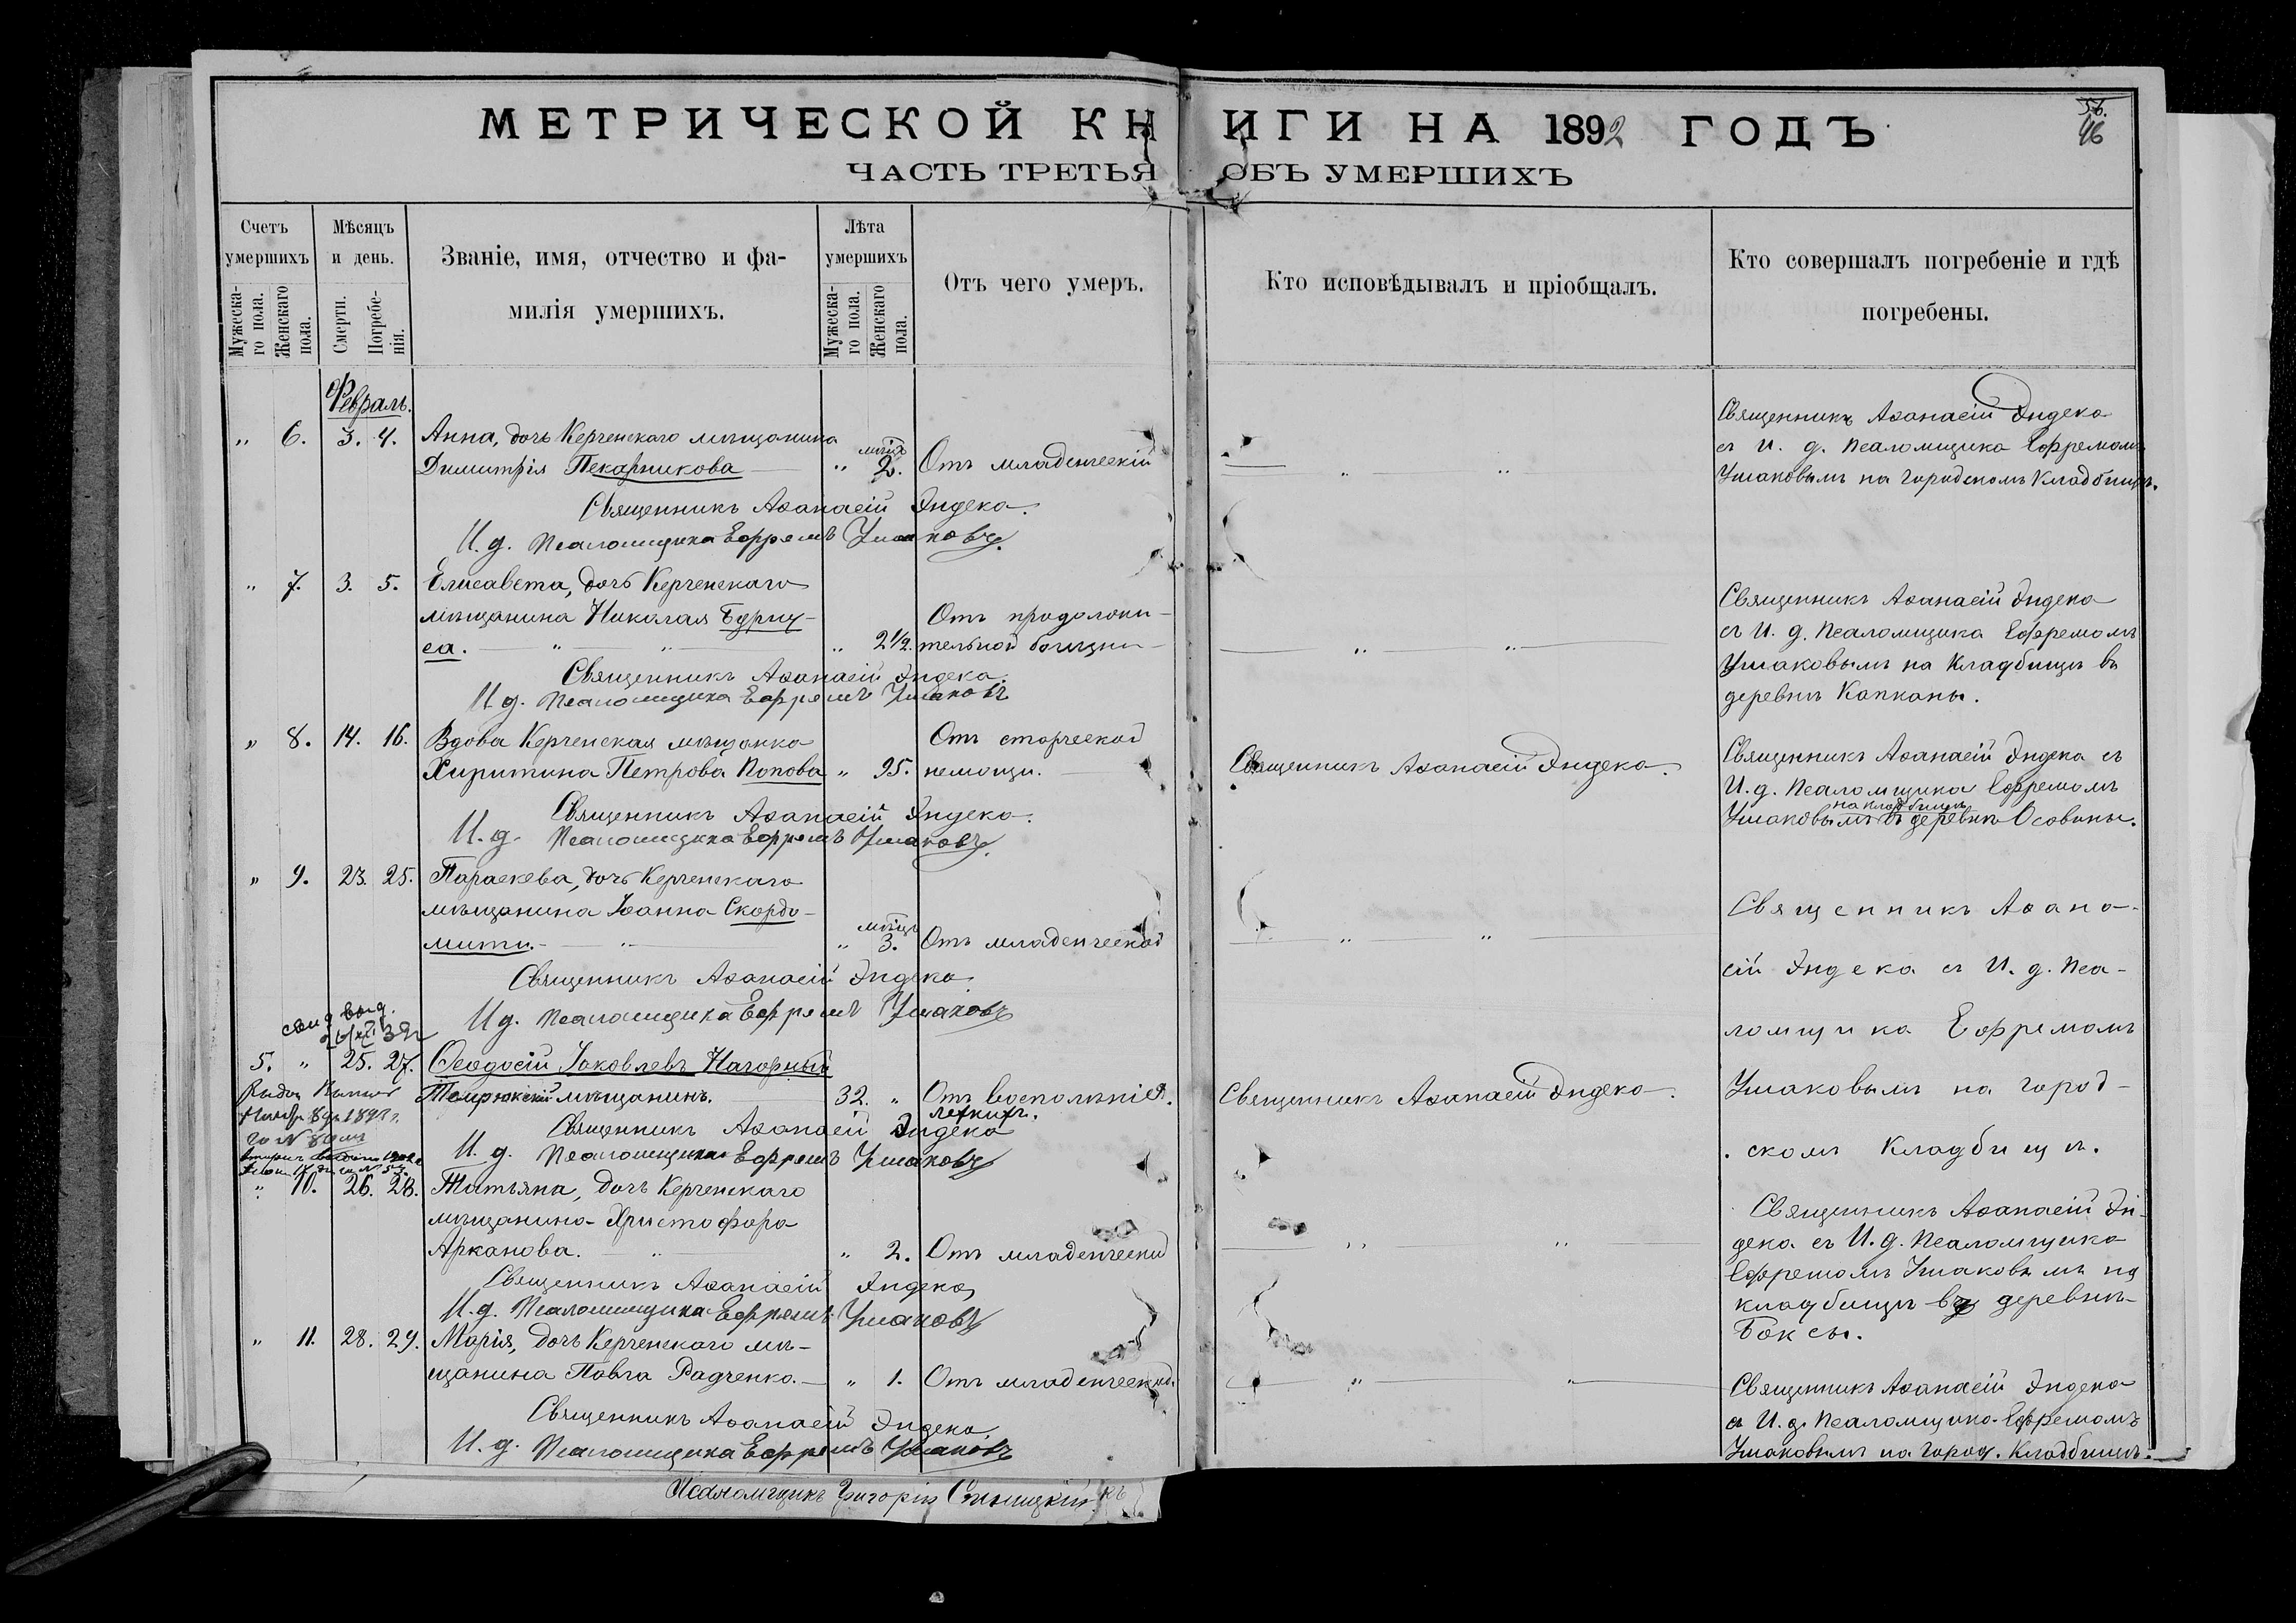 МЕТРИЧЕСКОЙ КНИГИ НА 1892 ГОДЪ
56.
46
ЧАСТЬ ТРЕТЬЯ ОБЪ УМЕРШИХЪ
Счетъ умершихъ
Мужеска-
го пола.
Женскаго
пола.
Мѣсяцъ
и день.
Смерти.
Погребе-
нія.
Званіе, имя, отчество и фа-
милія умершихъ.
Лѣта
умершихъ
Мужеска-
го пола.
Женскаго
пола.
Отъ чего умеръ.
Кто исповѣдывалъ и пріобщалъ.
Кто совершалъ погребеніе и гдѣ
погребены.
Февраль.
" 6. 3. 4. Анна, дочь Керченскаго мѣщанина
Димитрія Пекарникова " 2. Отъ младенческій
Священникъ Аѳанасій Эндека
съ И. д. Псаломщика Ефремомъ
Ушаковымъ на городскомъ Кладбищѣ.
Священникъ Аѳанасій Эндека.
И. д. Псаломщика Ефремъ Ушаковъ.
" 7. 3. 5. Елисавета, дочь Керченскаго
мѣщанина Николая Бурич-
са. " 2½. Отъ продолжи-
тельной болѣзни
Священникъ Аѳанасій Эндека
съ И. д. Псаломщика Ефремомъ
Ушаковымъ на Кладбищѣ въ
деревнѣ Капканы.
Священникъ Аѳанасій Эндека.
И. д. Псаломщика Ефремъ Ушаковъ
" 8. 14. 16. Вдова Керченская мѣщанка
Харитина Петрова Попова " 95. Отъ старческой
немощи.
Священникъ Аѳанасій Эндека.
Священникъ Аѳанасій Эндека съ
И. д. Псаломщика Ефремомъ
на кладбищѣ
Ушаковымъ въ деревнѣ Осовины.
Священникъ Аѳанасій Эндека.
И. д. Псаломщика Ефремъ Ушаковъ.
" 9. 23. 25. Параскева, дочь Керченскаго
мѣщанина Іоанна Скордо-
мити. " 3. Отъ младенческой
Священникъ Аѳана-
сій Эндека съ И. д. Пса-
ломщика Ефремомъ
Ушаковымъ на город-
скомъ Кладбищѣ.
Священникъ Аѳанасій Эндека
И. д. Псаломщика Ефремъ Ушаковъ
5. " 25. 27. Ѳеодосій Іаковлевъ Нагорный
Темрюкскій мѣщанинъ. 32. " Отъ воспаленія
легкихъ.
Священникъ Аѳанасій Эндека.
Священникъ Аѳанасій Эндека
И. д. Псаломщика Ефремъ Ушаковъ
" 10. 26. 28. Татьяна, дочь Керченскаго
мѣщанина Христофора
Арканова. " 2. Отъ младенческой
Священникъ Аѳанасій Эн-
дека съ И. д. Псаломщика
Ефремомъ Ушаковымъ на
кладбищѣ въ деревнѣ
Баксы.
Священникъ Аѳанасій Эндека
И. д. Псаломщика Ефремъ Ушаковъ
" 11. 28. 29. Марія, дочь Керченскаго мѣ-
щанина Павла Радченко. " 1. Отъ младенческой.
Священникъ Аѳанасій Эндека
съ И. д. Псаломщика Ефремомъ
Ушаковымъ на город. Кладбищѣ.
Священникъ Аѳанасій Эндека
И. д. Псаломщика Ефремъ Ушаковъ
Псаломщикъ Григорій